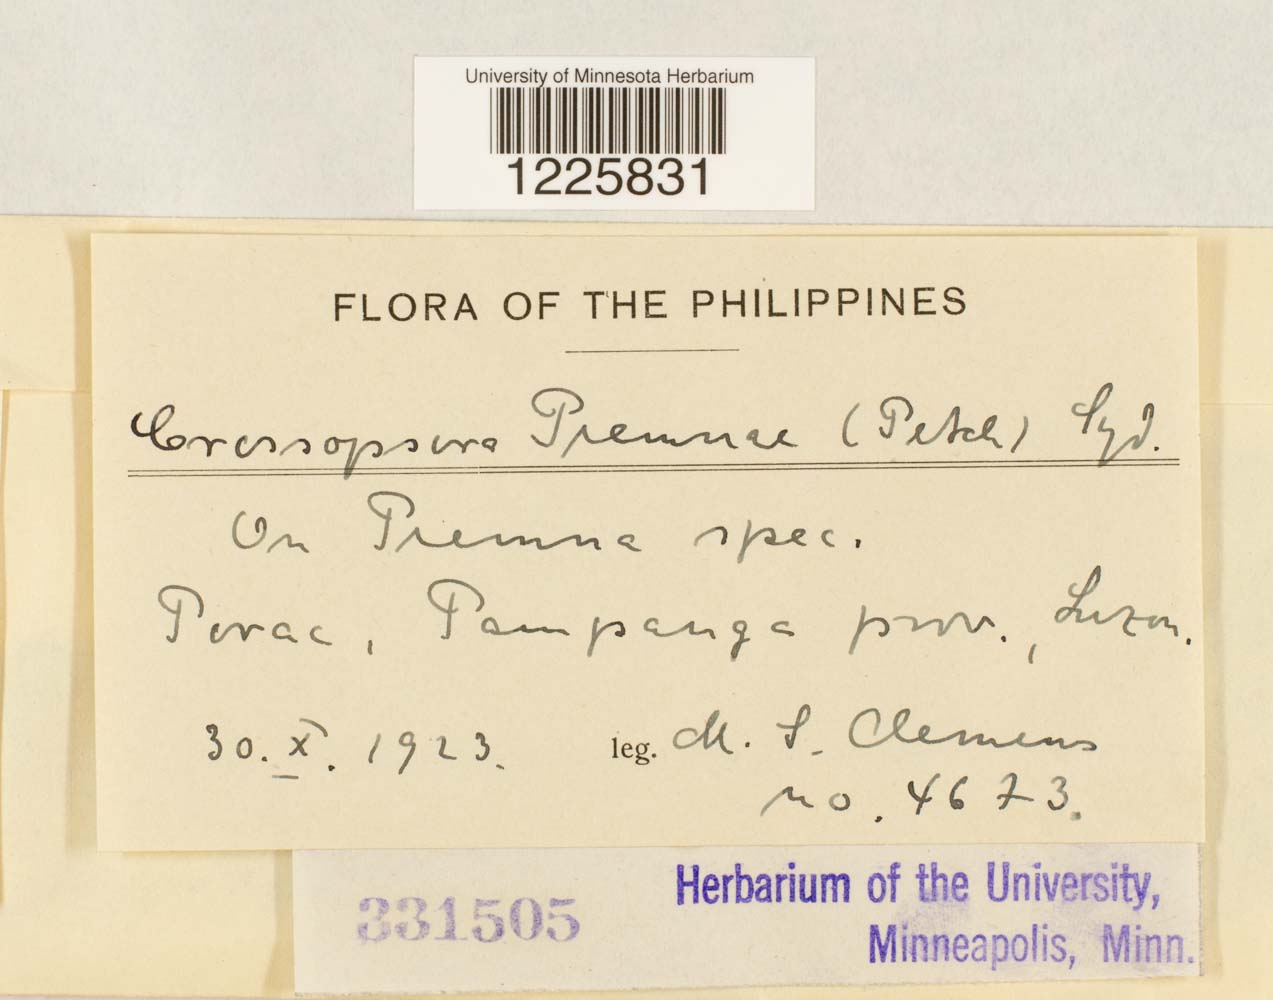 University of Minnesota Herbarium
1225831
FLORA OF THE PHILIPPINES
Crossopsora Premnae (Petch) Syd.
On Premna spec.
Porac, Pampanga prov., Luzon.
30. X. 1923. leg. M. S. Clemens
no. 4673.
331505
Herbarium of the University,
Minneapolis, Minn.